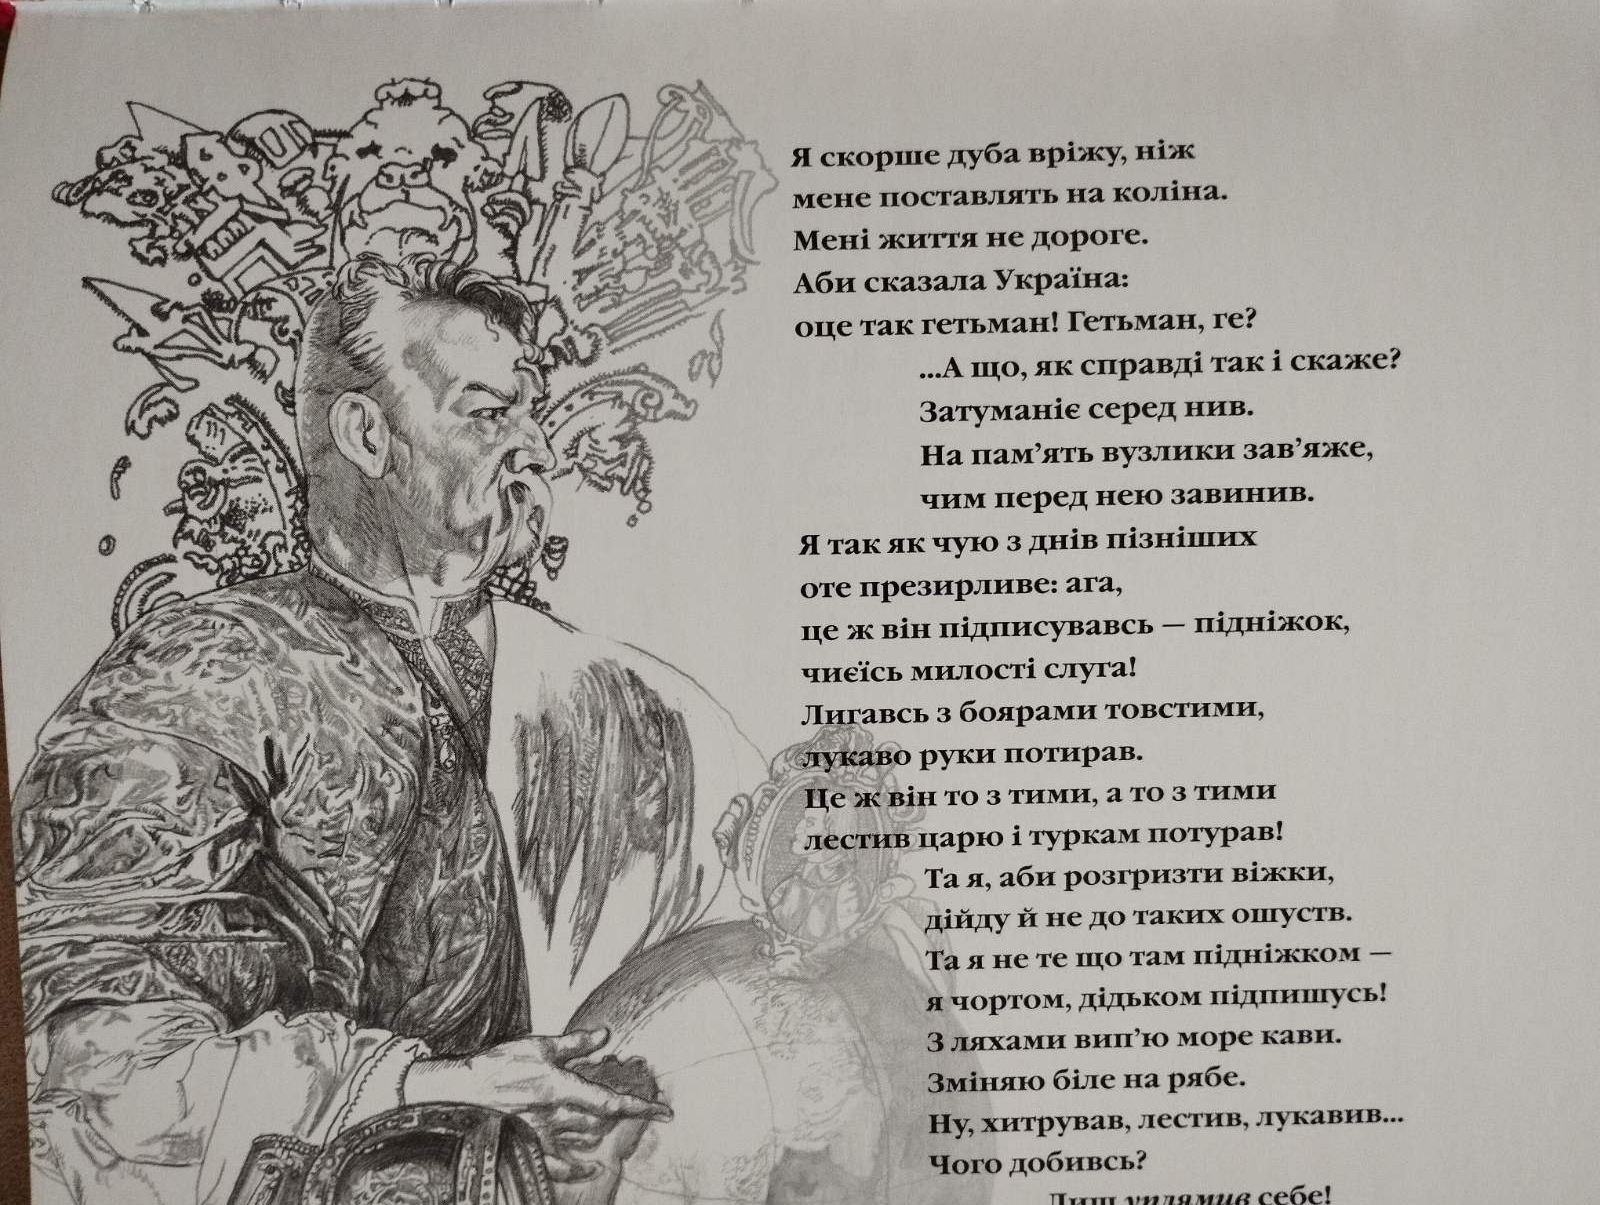 Я скорше дуба вріжу, ніж
мене поставлять на коліна.
Мені життя не дороге.
Аби сказала Україна:
оце так гетьман! Гетьман, ге?
...А що, як справді так і скаже?
Затуманіє серед нив.
На пам’ять вузлики зав’яже,
чим перед нею завинив.
Я так як чую з днів пізніших
оте презирливе: ага,
це ж він підписувавсь — підніжок,
чиєїсь милості слуга!
Лигавсь з боярами товстими,
лукаво руки потирав.
Це ж він то з тими, а то з тими
лестив царю і туркам потурав!
Та я, аби розгризти віжки,
дійду й не до таких ошуств.
Та я не те що там підніжком —
я чортом, дідьком підпишусь!
З ляхами вип’ю море кави.
Зміняю біле на рябе.
Ну, хитрував, лестив, лукавив...
Чого добивсь?
Лиш уплямив себе!